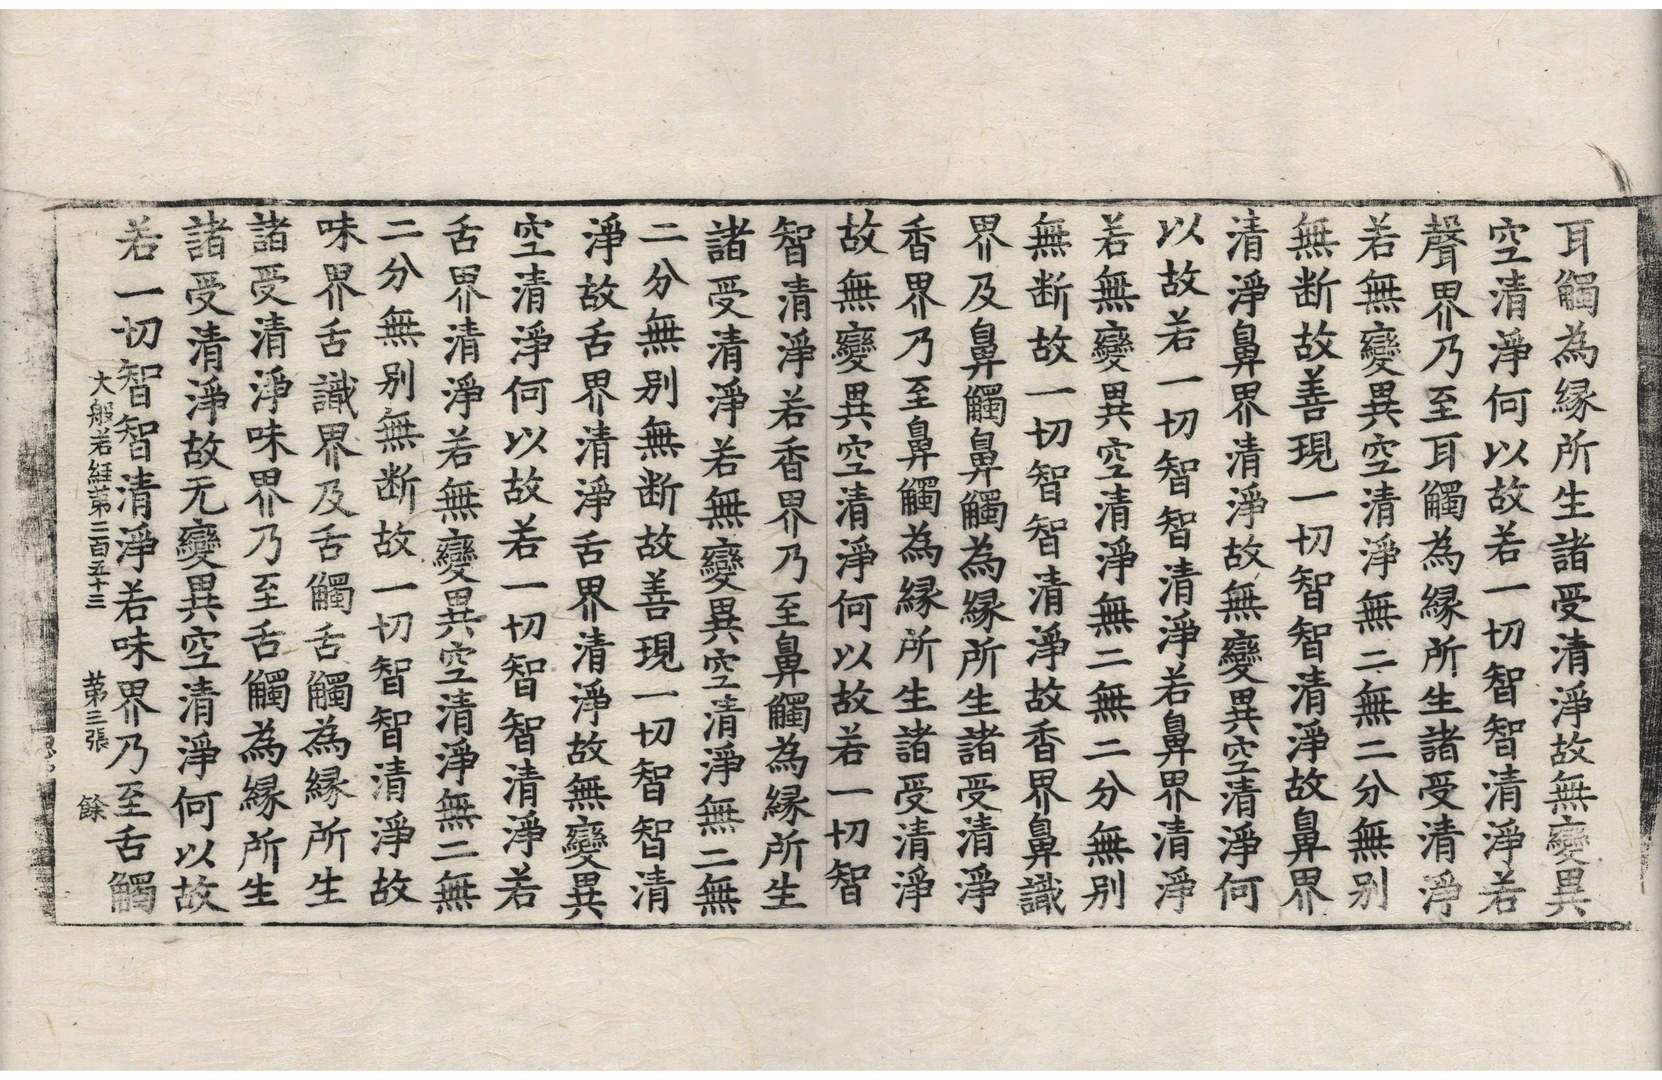 耳觸為縁所生諸受清淨故無變異
空清淨何以故若一切智智清淨若
聲界乃至耳觸為縁所生諸受清淨
若無變異空清淨無二無二分無别
無断故善現一切智智清淨故鼻界
清淨鼻界清淨故無變異空清淨何
以故若一切智智清淨若鼻界清淨
若無變異空清淨無二無二分無别
無断故一切智智清淨故香界鼻識
界及鼻觸鼻觸為縁所生諸受清淨
香界乃至鼻觸為縁所生諸受清淨
故無變異空清淨何以故若一切智
智清淨若香界乃至鼻觸為縁所生
諸受清淨若無變異空清淨無二無
二分無别無断故善現一切智智清
淨故舌界清淨舌界清淨故無變異
空清淨何以故若一切智智清淨若
舌界清淨若無變異空清淨無二無
二分無别無断故一切智智清淨故
味界舌識界及舌觸舌觸為縁所生
諸受清淨味界乃至舌觸為縁所生
諸受清淨故无變異空清淨何以故
若一切智智清淨若味界乃至舌觸
大般若経第三百五十三 第三張 餘